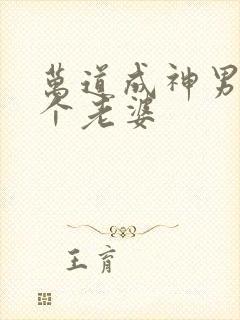 萬道成神男
个老婆
王育